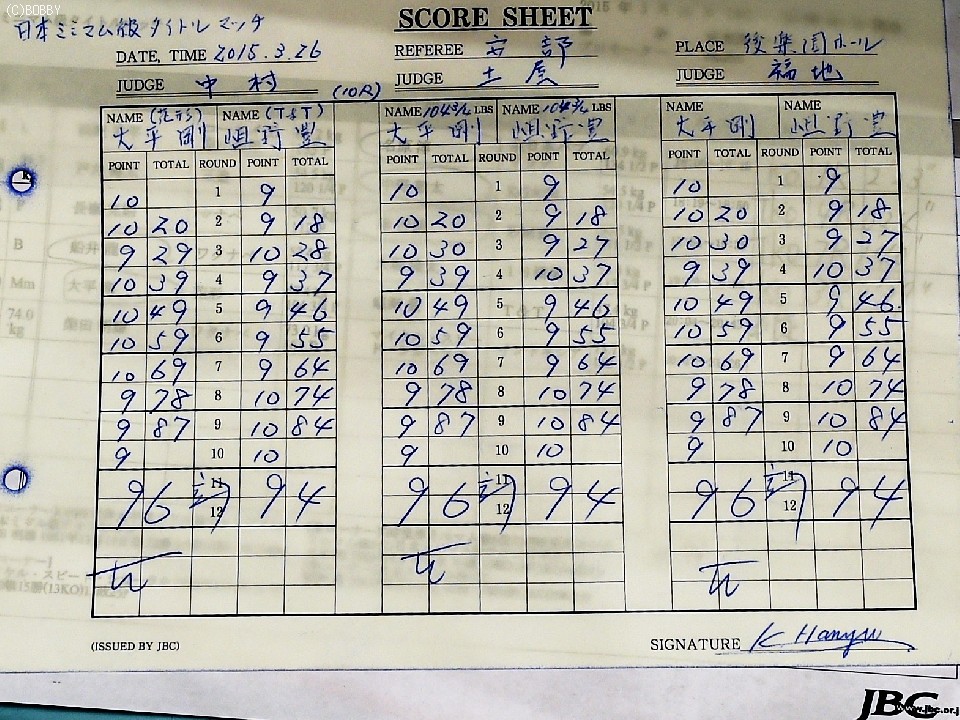 (C)BOBBY
SCORE SHEET
日本ミニマム級タイトルマッチ
DATE, TIME 2015.3.26 REFEREE 安部 PLACE 後楽園ホール
JUDGE 中村 (10R) JUDGE 土屋 JUDGE 福地
NAME (花形) NAME (T&T) NAME 104 3/4 LBS NAME 104 3/4 LBS NAME NAME
大平剛 岨野豊 大平剛 岨野豊 大平剛 岨野豊
POINT TOTAL ROUND POINT TOTAL POINT TOTAL ROUND POINT TOTAL POINT TOTAL ROUND POINT TOTAL
10 1 9 10 1 9 10 1 9
10 20 2 9 18 10 20 2 9 18 10 20 2 9 18
9 29 3 10 28 10 30 3 9 27 10 30 3 9 27
10 39 4 9 37 9 39 4 10 37 9 39 4 10 37
10 49 5 9 46 10 49 5 9 46 10 49 5 9 46.
10 59 6 9 55 10 59 6 9 55 10 59 6 9 55
10 69 7 9 64 10 69 7 9 64 10 69 7 9 64
9 78 8 10 74 9 78 8 10 74 9 78 8 10 74
9 87 9 10 84 9 87 9 10 84 9 87 9 10 84
9 10 10 9 10 10 9 10 10
11 11 11
96 対 94 96 対 94 96 対 94
12 12 12
(ISSUED BY JBC) SIGNATURE K Hanyu
JBC
www.jbc.or.j